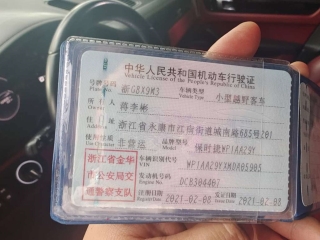 中华人民共和国机动车行驶证
Vehicle License of the People's Republic of China
号牌号码 浙GBX9M3 车辆类型 小型越野客车
Plate No. Vehicle Type
所有人
Owner
住址 浙江省永康市江南街道城南路685号201
Address
使用性质 非营运 品牌型号 保时捷WP1AA29Y
Model
浙江省金华
市公安局交
通警察支队
车辆识别代号
VIN
发动机号码 DCB304467
Engine No.
注册日期 2021-02-08 发证日期 2021-02-08
Register Date Issue Date